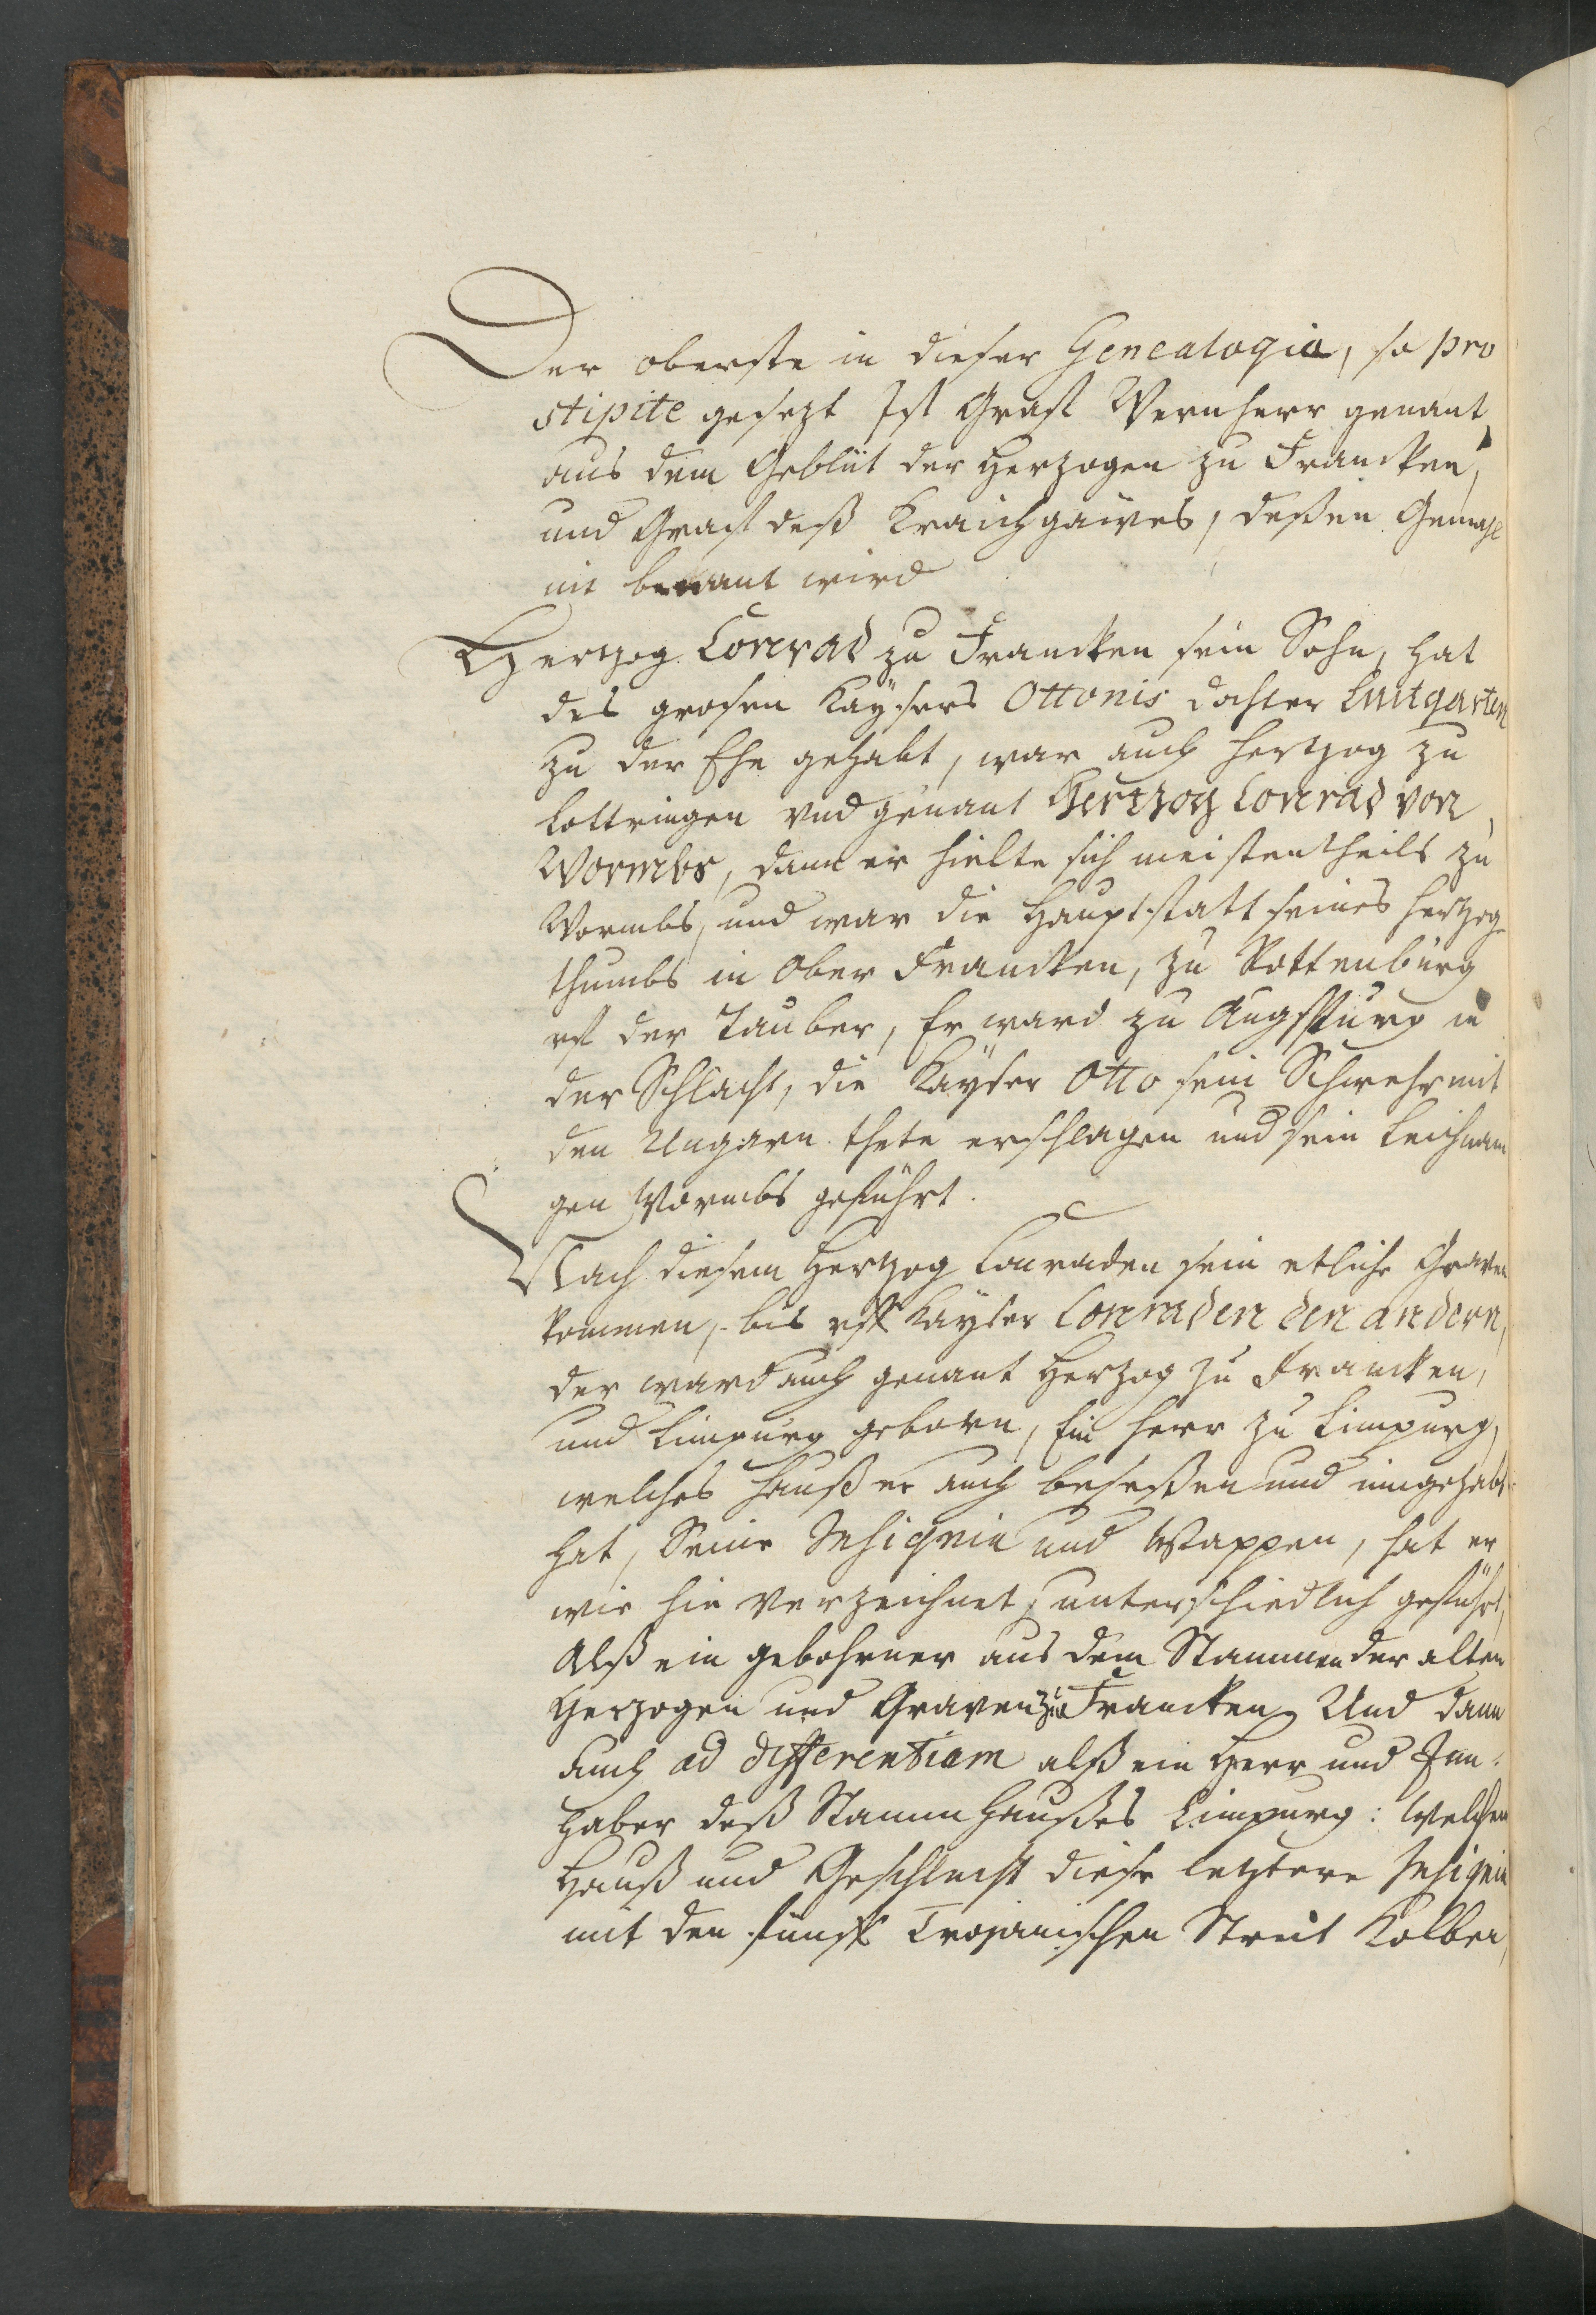 Der oberste in dieser Genealogia, so pro
stipite gesezt Ist Graff Wernherr genant,
aus dem Geblüt der Herzogen zu Francken,
und Graff deß Kraichgaires, deßen Gemahl
nit benant wird
Hertzog Conrad zu Francken sein Sohn, hat
des grosen Kaysers Ottonis dochter Luitgarten
zu der Ehe gehabt, war auch Hertzog zu
Lottringen und genant Hertzog Conrad von
Wormbs, dann er hielte sich meistentheils zu
Wormbs, und war die Hauptstatt seines Hertzog-
thumbs in Ober Francken, zu Rottenburg
uff der Tauber, Er ward zu Augspurg in
der Schlacht, die Kayser Otto sein Schwehr mit
den Ungarn thete erschlagen und sein Leichnam
gen Wormbs geführt.
Nach diesem Hertzog Conraden sein etliche Graven
kommen, bis uff Kayser Conraden den andern,
der ward auch genant Herzog zu Francken,
und Limpurg geborn, Ein Herr zu Limpurg,
welches Hauß er auch beseßen und inngehabt
hat, Seine Insignia und Wappen, hat er
wie hie verzeichnet, unterschiedlich geführt,
Alß ein gebohrner aus dem Stammen der alten
Herzogen und Graven zu Francken, Und dann
auch ad differentiam alß ein Herr und Inn-
haber deß Stammhaußes Limpurg: Welchen
Hauß und Geschlecht diese letztere Insignia
mit den fünff Trojanischen Streit Kolben,